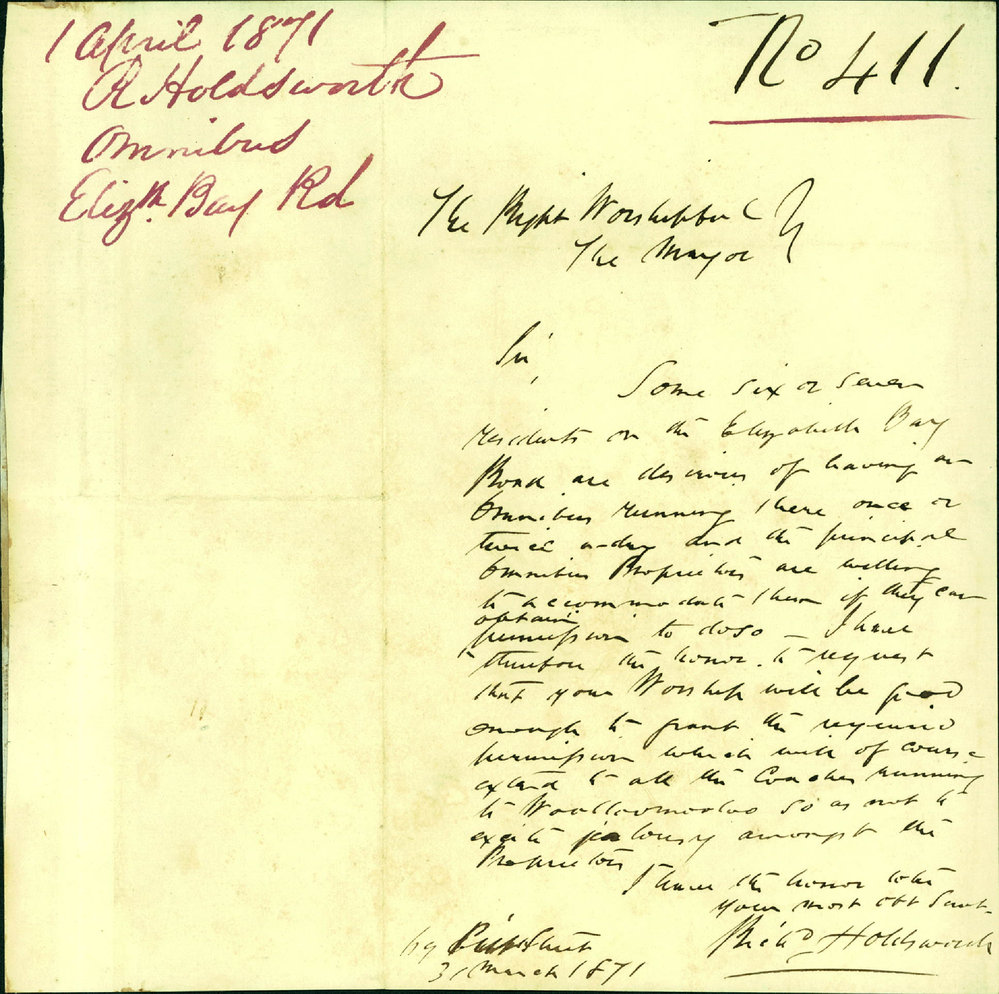 1 April 1871
R Holdsworth
Omnibus
Elizth. Bay Rd
No 411.
The Right Worshipful
The Mayor
Sir,
Some six or seven
residents on the Elizabeth Bay
Road are desirous of having an
Omnibus running there once or
twice a-day and the principal
Omnibus Proprietors are willing
to accommodate them if they can
obtain
permission to do so — I have
therefore the honor to request
that your Worship will be good
enough to grant the required
permission which will of course
extend to all the Coaches running
to Woolloomooloo so as not to
excite jealousy amongst the
Proprietors
I have the honor to be
your most obt Servt
Richd Holdsworth
Street
31 March 1871